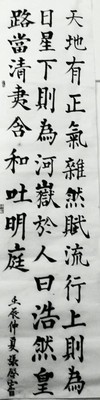 天地有正氣雜然賦流行上則為
日星下則為河嶽於人曰浩然皇
路當清夷含和吐明庭
壬辰仲夏張